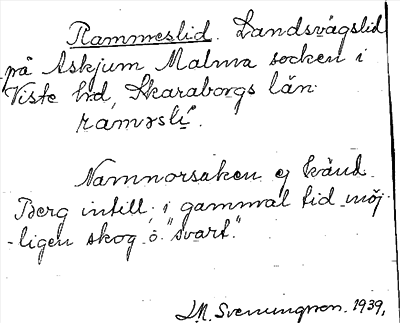 Rammeslid. Landsvägslid
på Askjum Malma socken i
Viste hrd, Skaraborgs län.
ramǝsli.
Namnorsaken ej känd.
Berg intill, i gammal tid möj-
-ligen skog o. "svart".
J.M. Svenningson. 1939,